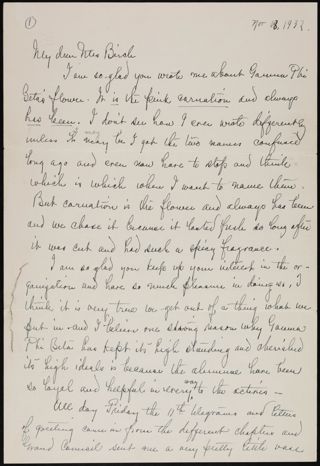 ①
Nov 18, 1932.
My dear Miss Birch
I am so glad you wrote me about Gamma Phi
Beta's flower. It is the pink carnation and always
has been. I don't see how I ever wrote differently
unless it may be I got the two names confused
long ago and even now have to stop and think
which is which when I want to name them.
But carnation is the flower and always has been
and we chose it because it lasted fresh so long after
it was cut and had such a spicy fragrance.
I am so glad you keep up your interest in the or-
ganization and have so much pleasure in doing so. I
think it is very true we get out of a thing what we
put in - and I believe one strong reason why Gamma
Phi Beta has kept its high standing and cherished
its high ideals is because the alumnae have been
so loyal and helpful in every way to the actives -
All day Friday the 11th telegrams and letters
of greeting came in from the different chapters and
Grand Council sent me a very pretty little vase